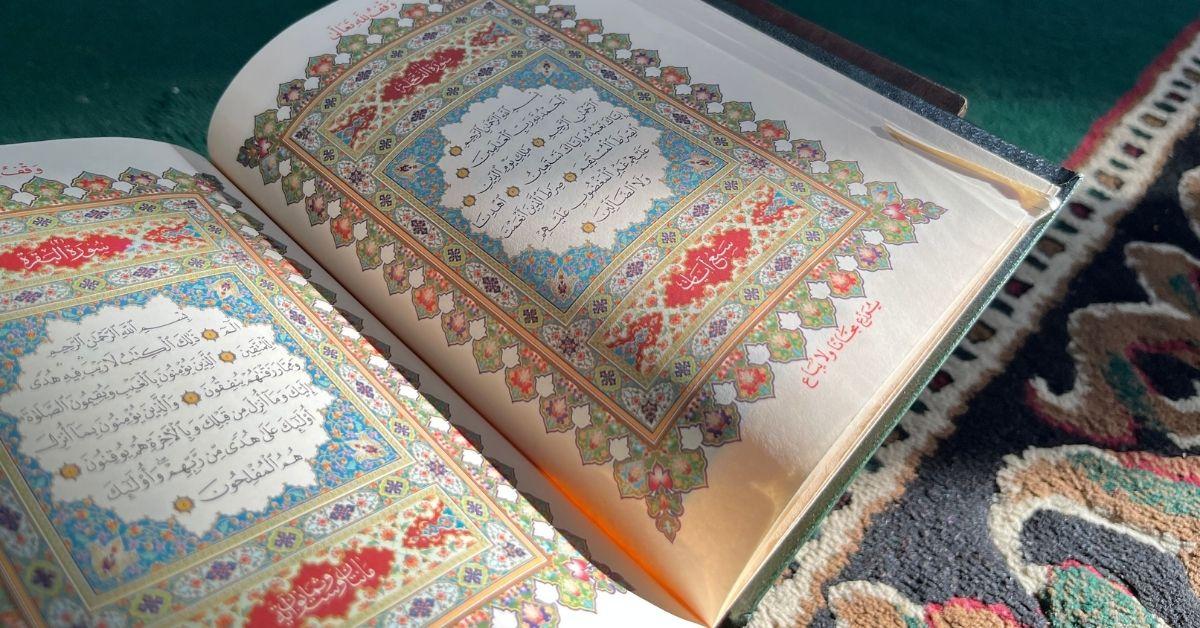 وَقْفٌ لِلَّهِ تَعَالَىٰ
سُورَةُ الْفَاتِحَةِ
بِسْمِ اللَّهِ الرَّحْمَٰنِ الرَّحِيمِ
الْحَمْدُ لِلَّهِ رَبِّ الْعَالَمِينَ
الرَّحْمَٰنِ الرَّحِيمِ مَالِكِ يَوْمِ الدِّينِ
إِيَّاكَ نَعْبُدُ وَإِيَّاكَ نَسْتَعِينُ اهْدِنَا
الصِّرَاطَ الْمُسْتَقِيمَ صِرَاطَ الَّذِينَ أَنْعَمْتَ
عَلَيْهِمْ غَيْرِ الْمَغْضُوبِ عَلَيْهِمْ
وَلَا الضَّالِّينَ
سَبْعُ آيَاتٍ
مجانًا ولا يباع
وَقْفٌ
سُورَةُ الْبَقَرَةِ
بِسْمِ اللَّهِ الرَّحْمَٰنِ الرَّحِيمِ
الٓمٓ ذَٰلِكَ الْكِتَٰبُ لَا رَيْبَ فِيهِ هُدًى
لِلْمُتَّقِينَ الَّذِينَ يُؤْمِنُونَ بِالْغَيْبِ وَيُقِيمُونَ الصَّلَوٰةَ
وَمِمَّا رَزَقْنَٰهُمْ يُنْفِقُونَ وَالَّذِينَ يُؤْمِنُونَ بِمَا أُنْزِلَ
إِلَيْكَ وَمَا أُنْزِلَ مِنْ قَبْلِكَ وَبِالْآخِرَةِ هُمْ يُوقِنُونَ
أُولَٰئِكَ عَلَىٰ هُدًى مِنْ رَبِّهِمْ وَأُولَٰئِكَ
هُمُ الْمُفْلِحُونَ
مائتان وست وثمانون